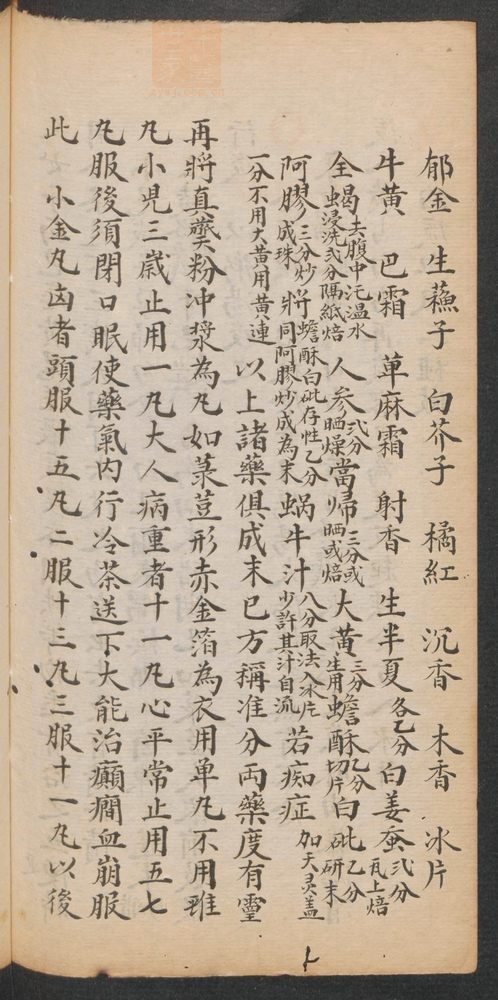 郁金 生蘓子 白芥子 橘紅 沉香 木香 冰片
牛黄 巴霜 萆麻霜 射香 生半夏各乙分 白姜蚕弍分瓦上焙
全蝎去腹中汚温水虫浸洗弍分隔紙焙 人参弍分晒燥 當帰三分或晒或焙 大黄三分生用 蟾酥乙分切片 白砒乙分研末
阿膠三分炒成珠 将蟾酥白砒存性乙分將同阿膠炒成為末 蝸牛汁八分取法入冰片少許其汁自流 若痴症加天灵盖
一分不用大黄用黄連 以上諸藥俱成末已方稱准分両藥度有霊
再將真糞粉冲漿為凡如菉荳形赤金箔為衣用单凡不用雖
凡小児三歳止用一凡大人病重者十一凡心平常止用五七
凡服後須閉口眠使藥氣内行冷茶送下大能治癲癇血崩服
此 小金凡卤者頭服十五凡二服十三凡三服十一凡以後